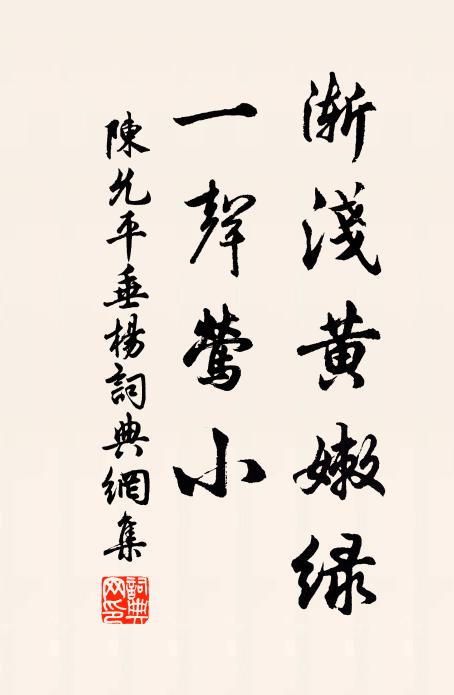 渐淺黄嫩緑
一聲鶯小
陳允平垂楊詞典網集
詞典网印